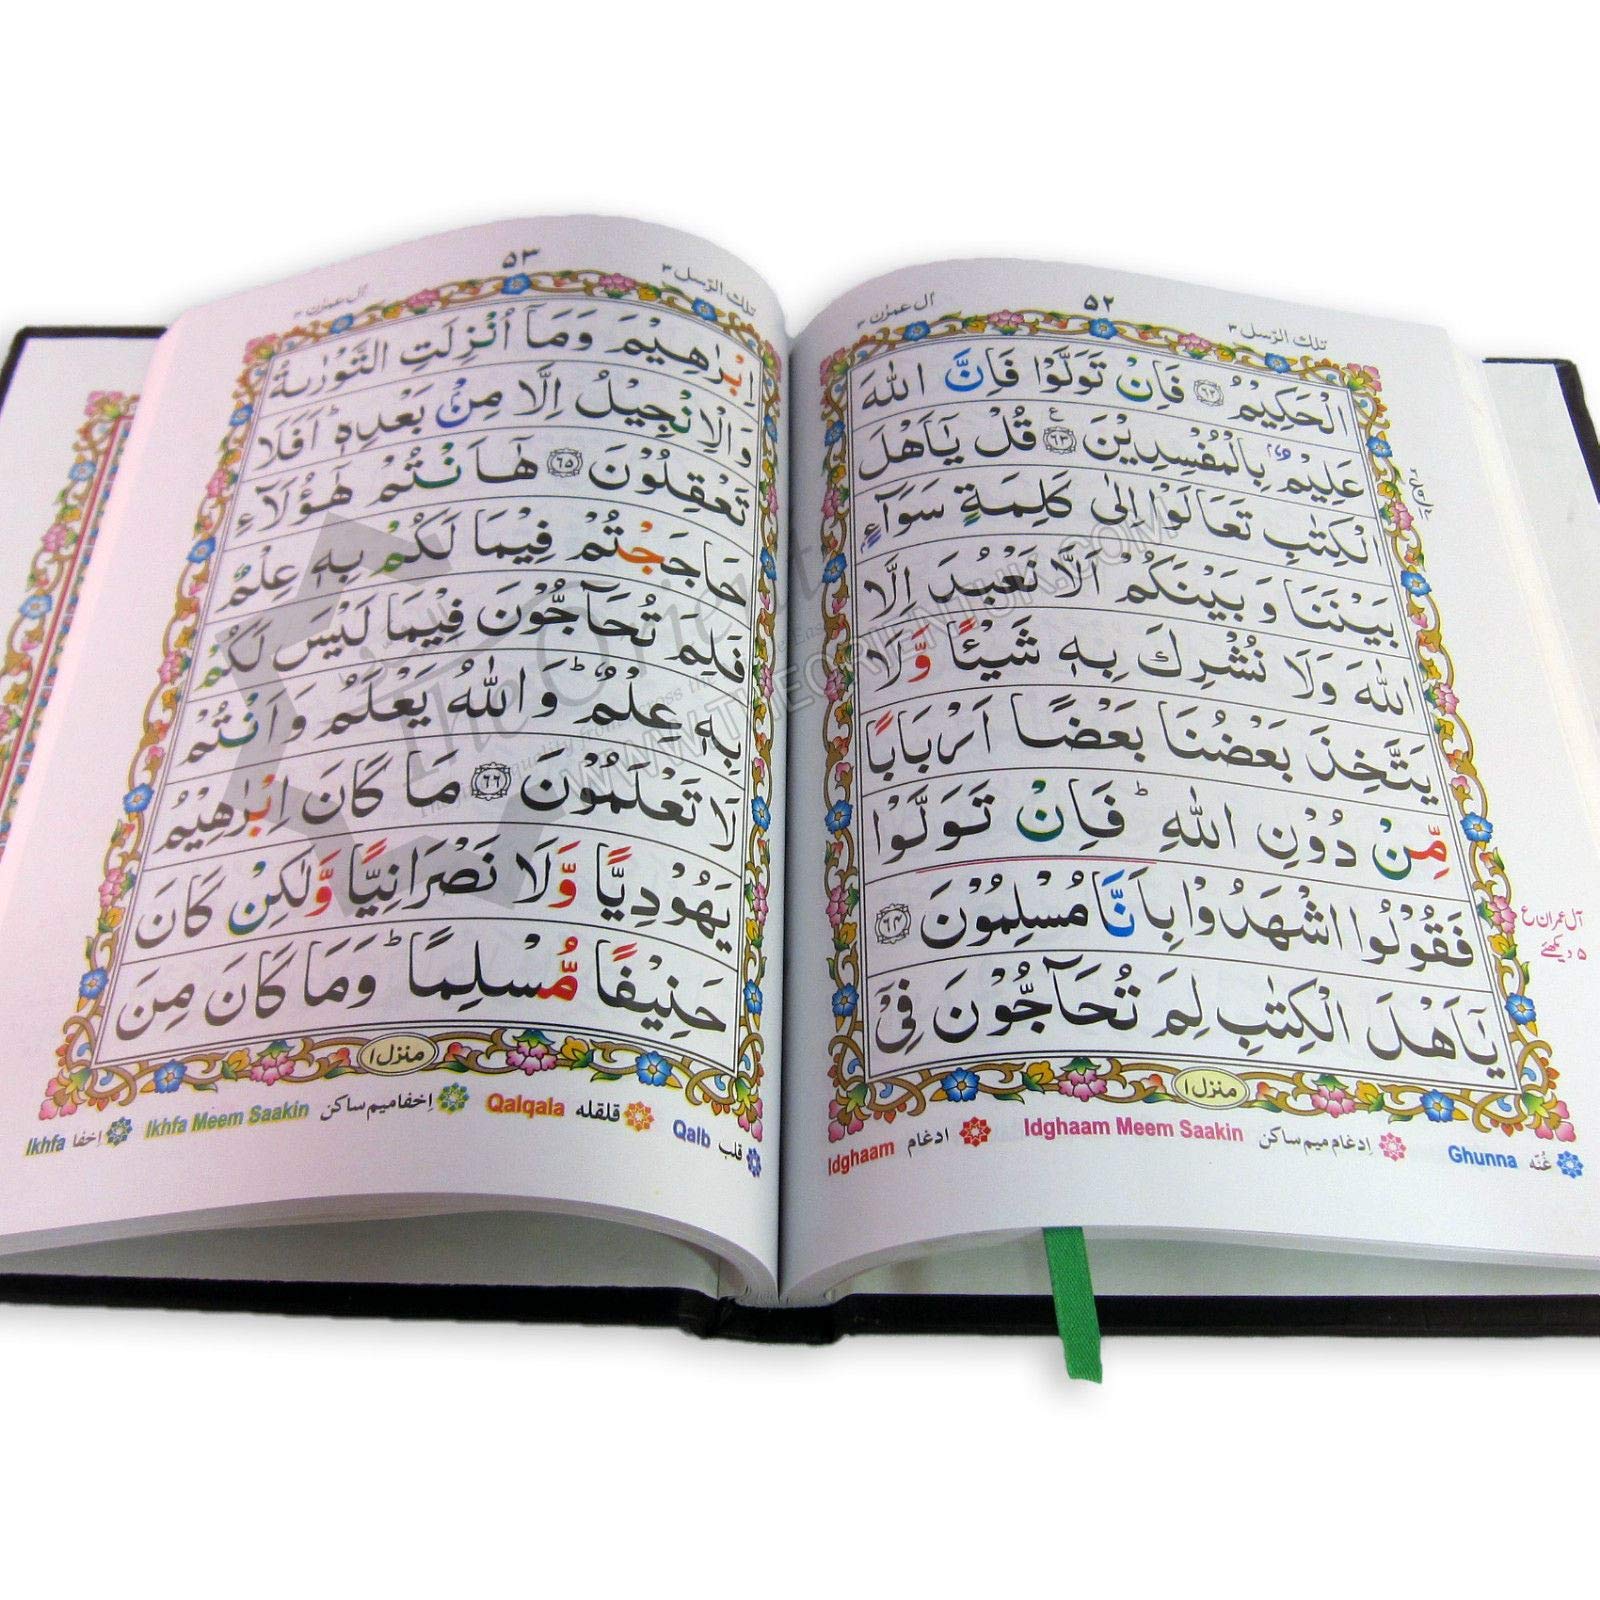 تلك الرسل ٣
٥٢
آل عمرٰن ٣
الْحَكِيْمُ ﴿٦٢﴾ فَاِنْ تَوَلَّوْا فَاِنَّ اللّٰهَ
عَلِيْمٌۢ بِالْمُفْسِدِيْنَ ﴿٦٣﴾ ع قُلْ يٰۤاَهْلَ
الْكِتٰبِ تَعَالَوْا اِلٰى كَلِمَةٍ سَوَآءٍۭ
بَيْنَنَا وَبَيْنَكُمْ اَلَّا نَعْبُدَ اِلَّا
اللّٰهَ وَلَا نُشْرِكَ بِهٖ شَيْئًا وَّلَا
يَتَّخِذَ بَعْضُنَا بَعْضًا اَرْبَابًا
مِّنْ دُوْنِ اللّٰهِ ؕ فَاِنْ تَوَلَّوْا
فَقُوْلُوا اشْهَدُوْا بِاَنَّا مُسْلِمُوْنَ ﴿٦٤﴾
يٰۤاَهْلَ الْكِتٰبِ لِمَ تُحَآجُّوْنَ فِيْۤ
منزل ١
آل عمران ع
٥ دیکھئے
غُنّه Ghunna
اِدغام ميم ساكن Idghaam Meem Saakin
ادغام Idghaam
تلك الرسل ٣
٥٣
آل عمرٰن ٣
اِبْرٰهِيْمَ وَمَاۤ اُنْزِلَتِ التَّوْرٰىةُ
وَالْاِنْجِيْلُ اِلَّا مِنْۢ بَعْدِهٖ ؕ اَفَلَا
تَعْقِلُوْنَ ﴿٦٥﴾ هٰۤاَنْتُمْ هٰۤؤُلَآءِ
حَاجَجْتُمْ فِيْمَا لَكُمْ بِهٖ عِلْمٌ
فَلِمَ تُحَآجُّوْنَ فِيْمَا لَيْسَ لَكُمْ
بِهٖ عِلْمٌ ؕ وَاللّٰهُ يَعْلَمُ وَاَنْتُمْ
لَا تَعْلَمُوْنَ ﴿٦٦﴾ مَا كَانَ اِبْرٰهِيْمُ
يَهُوْدِيًّا وَّلَا نَصْرَانِيًّا وَّلٰكِنْ كَانَ
حَنِيْفًا مُّسْلِمًا ؕ وَمَا كَانَ مِنَ
منزل ١
قلب Qalb
قلقله Qalqala
اِخفا ميم ساكن Ikhfa Meem Saakin
اِخفا Ikhfa
The Orient
WWW.THEORIENTUK.COM